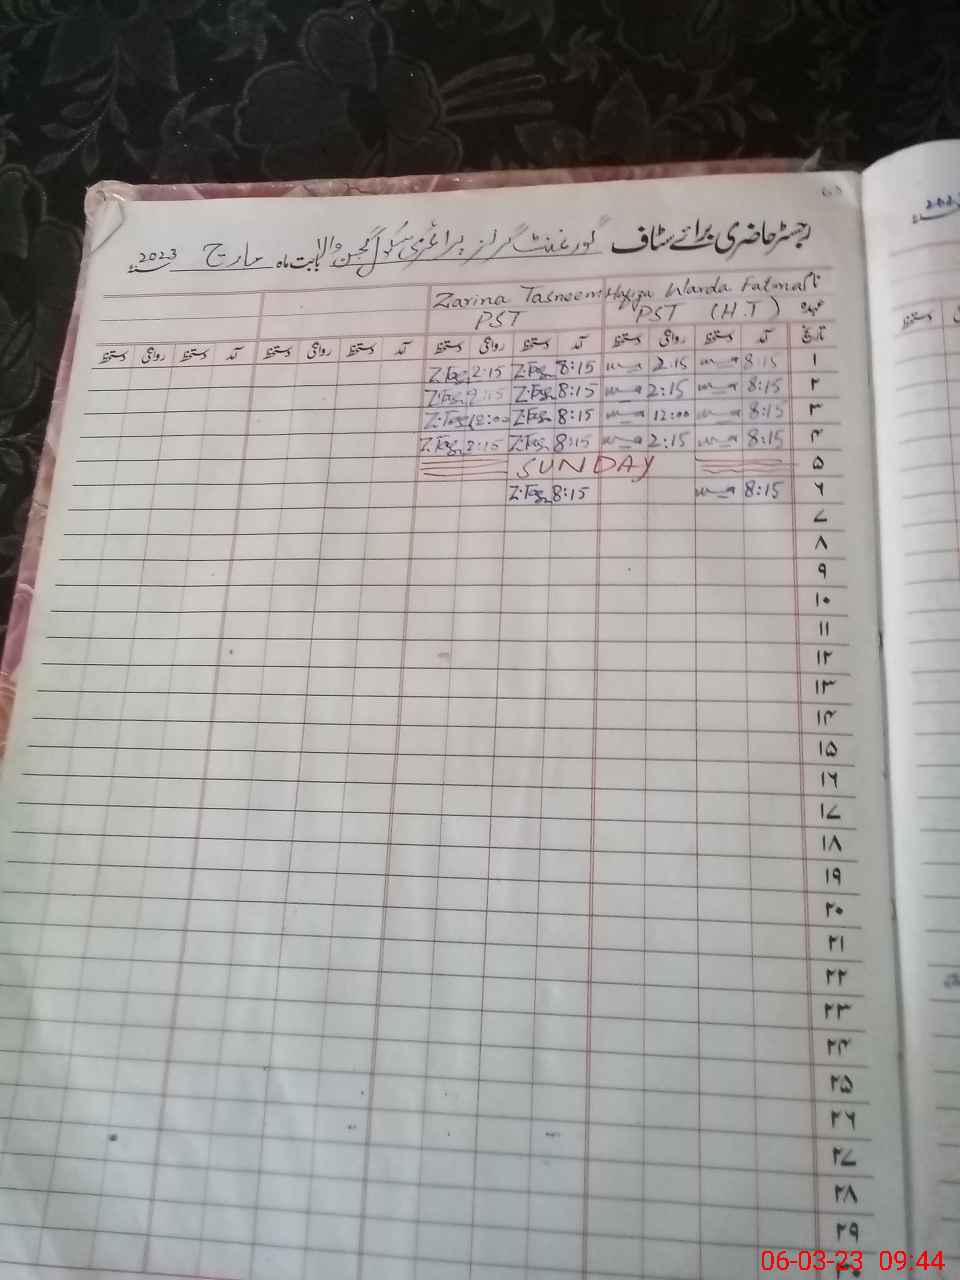 رجسٹر حاضری برائے سٹاف گورنمنٹ گرلز پرائمری سکول والا بابت ماہ مارچ 2023
Zarina Tasneem Hafiza Warda Fatima نام
PST PST (H.T) عہدہ
تاریخ آمد دستخط روانگی دستخط آمد دستخط روانگی دستخط آمد دستخط روانگی دستخط آمد دستخط روانگی دستخط
۱ 8:15 2:15 8:15 2:15
۲ 8:15 2:15 8:15 2:15
۳ 8:15 12:00 8:15 12:00
۴ 8:15 2:15 8:15 2:15
۵ SUNDAY
۶ 8:15 8:15
۷
۸
۹
۱۰
۱۱
۱۲
۱۳
۱۴
۱۵
۱۶
۱۷
۱۸
۱۹
۲۰
۲۱
۲۲
۲۳
۲۴
۲۵
۲۶
۲۷
۲۸
۲۹
۳۰
06-03-23 09:44